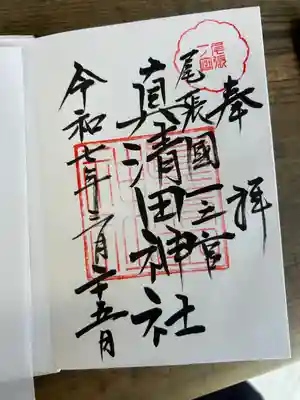 奉拝
尾張國一之宮
真清田神社
令和七年三月二十五日